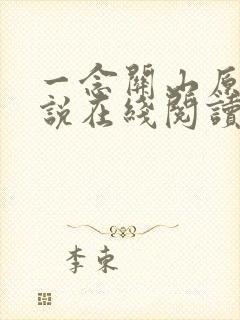 一念關山原
說在綫閱讀
李東